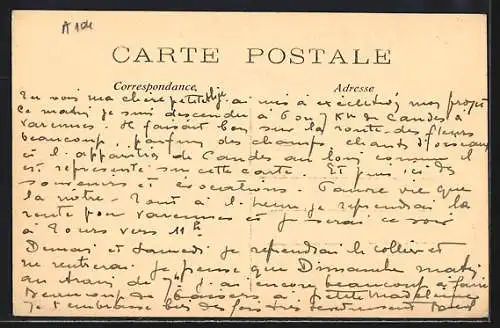 A 104
CARTE POSTALE
Correspondance Adresse
Tu vois ma chère petite j'ai mis à exécution mes projets
ce matin je suis descendu à 6 ou 7 km de Candes à
Varennes. Il faisait bon sur la route, des fleurs
beaucoup, parfum des champs, chants d'oiseaux
et l'apparition de Candes au loin comme il
est représenté sur cette carte. Et puis, ici des
souvenirs et évocations. Pauvre vie que
la notre. Tout à l'heure je reprendrai la
route pour Varennes et je serai ce soir
à Tours vers 11h
Demain et Samedi je reprendrai le collier et
me rentrerai je pense que Dimanche matin
au train de 7h J'ai encore beaucoup à faire
Beaucoup de baisers à petite Madeleine
Je t'embrasse bien des fois très tendrement